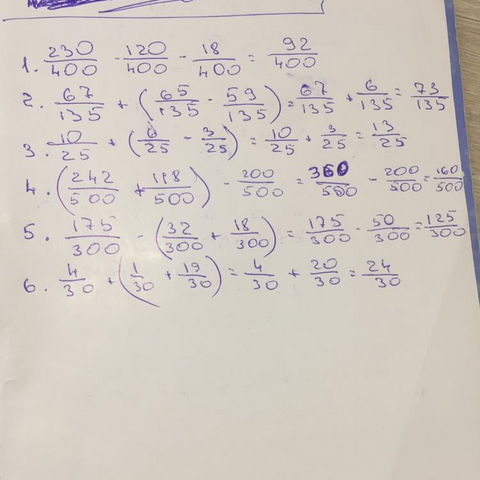 1. 230/400 - 120/400 - 18/400 = 92/400
2. 67/135 + (65/135 - 59/135) = 67/135 + 6/135 = 73/135
3. 10/25 + (6/25 - 3/25) = 10/25 + 3/25 = 13/25
4. (242/500 + 118/500) - 200/500 = 360/500 - 200/500 = 160/500
5. 175/300 - (32/300 + 18/300) = 175/300 - 50/300 = 125/300
6. 4/30 + (1/30 + 19/30) = 4/30 + 20/30 = 24/30